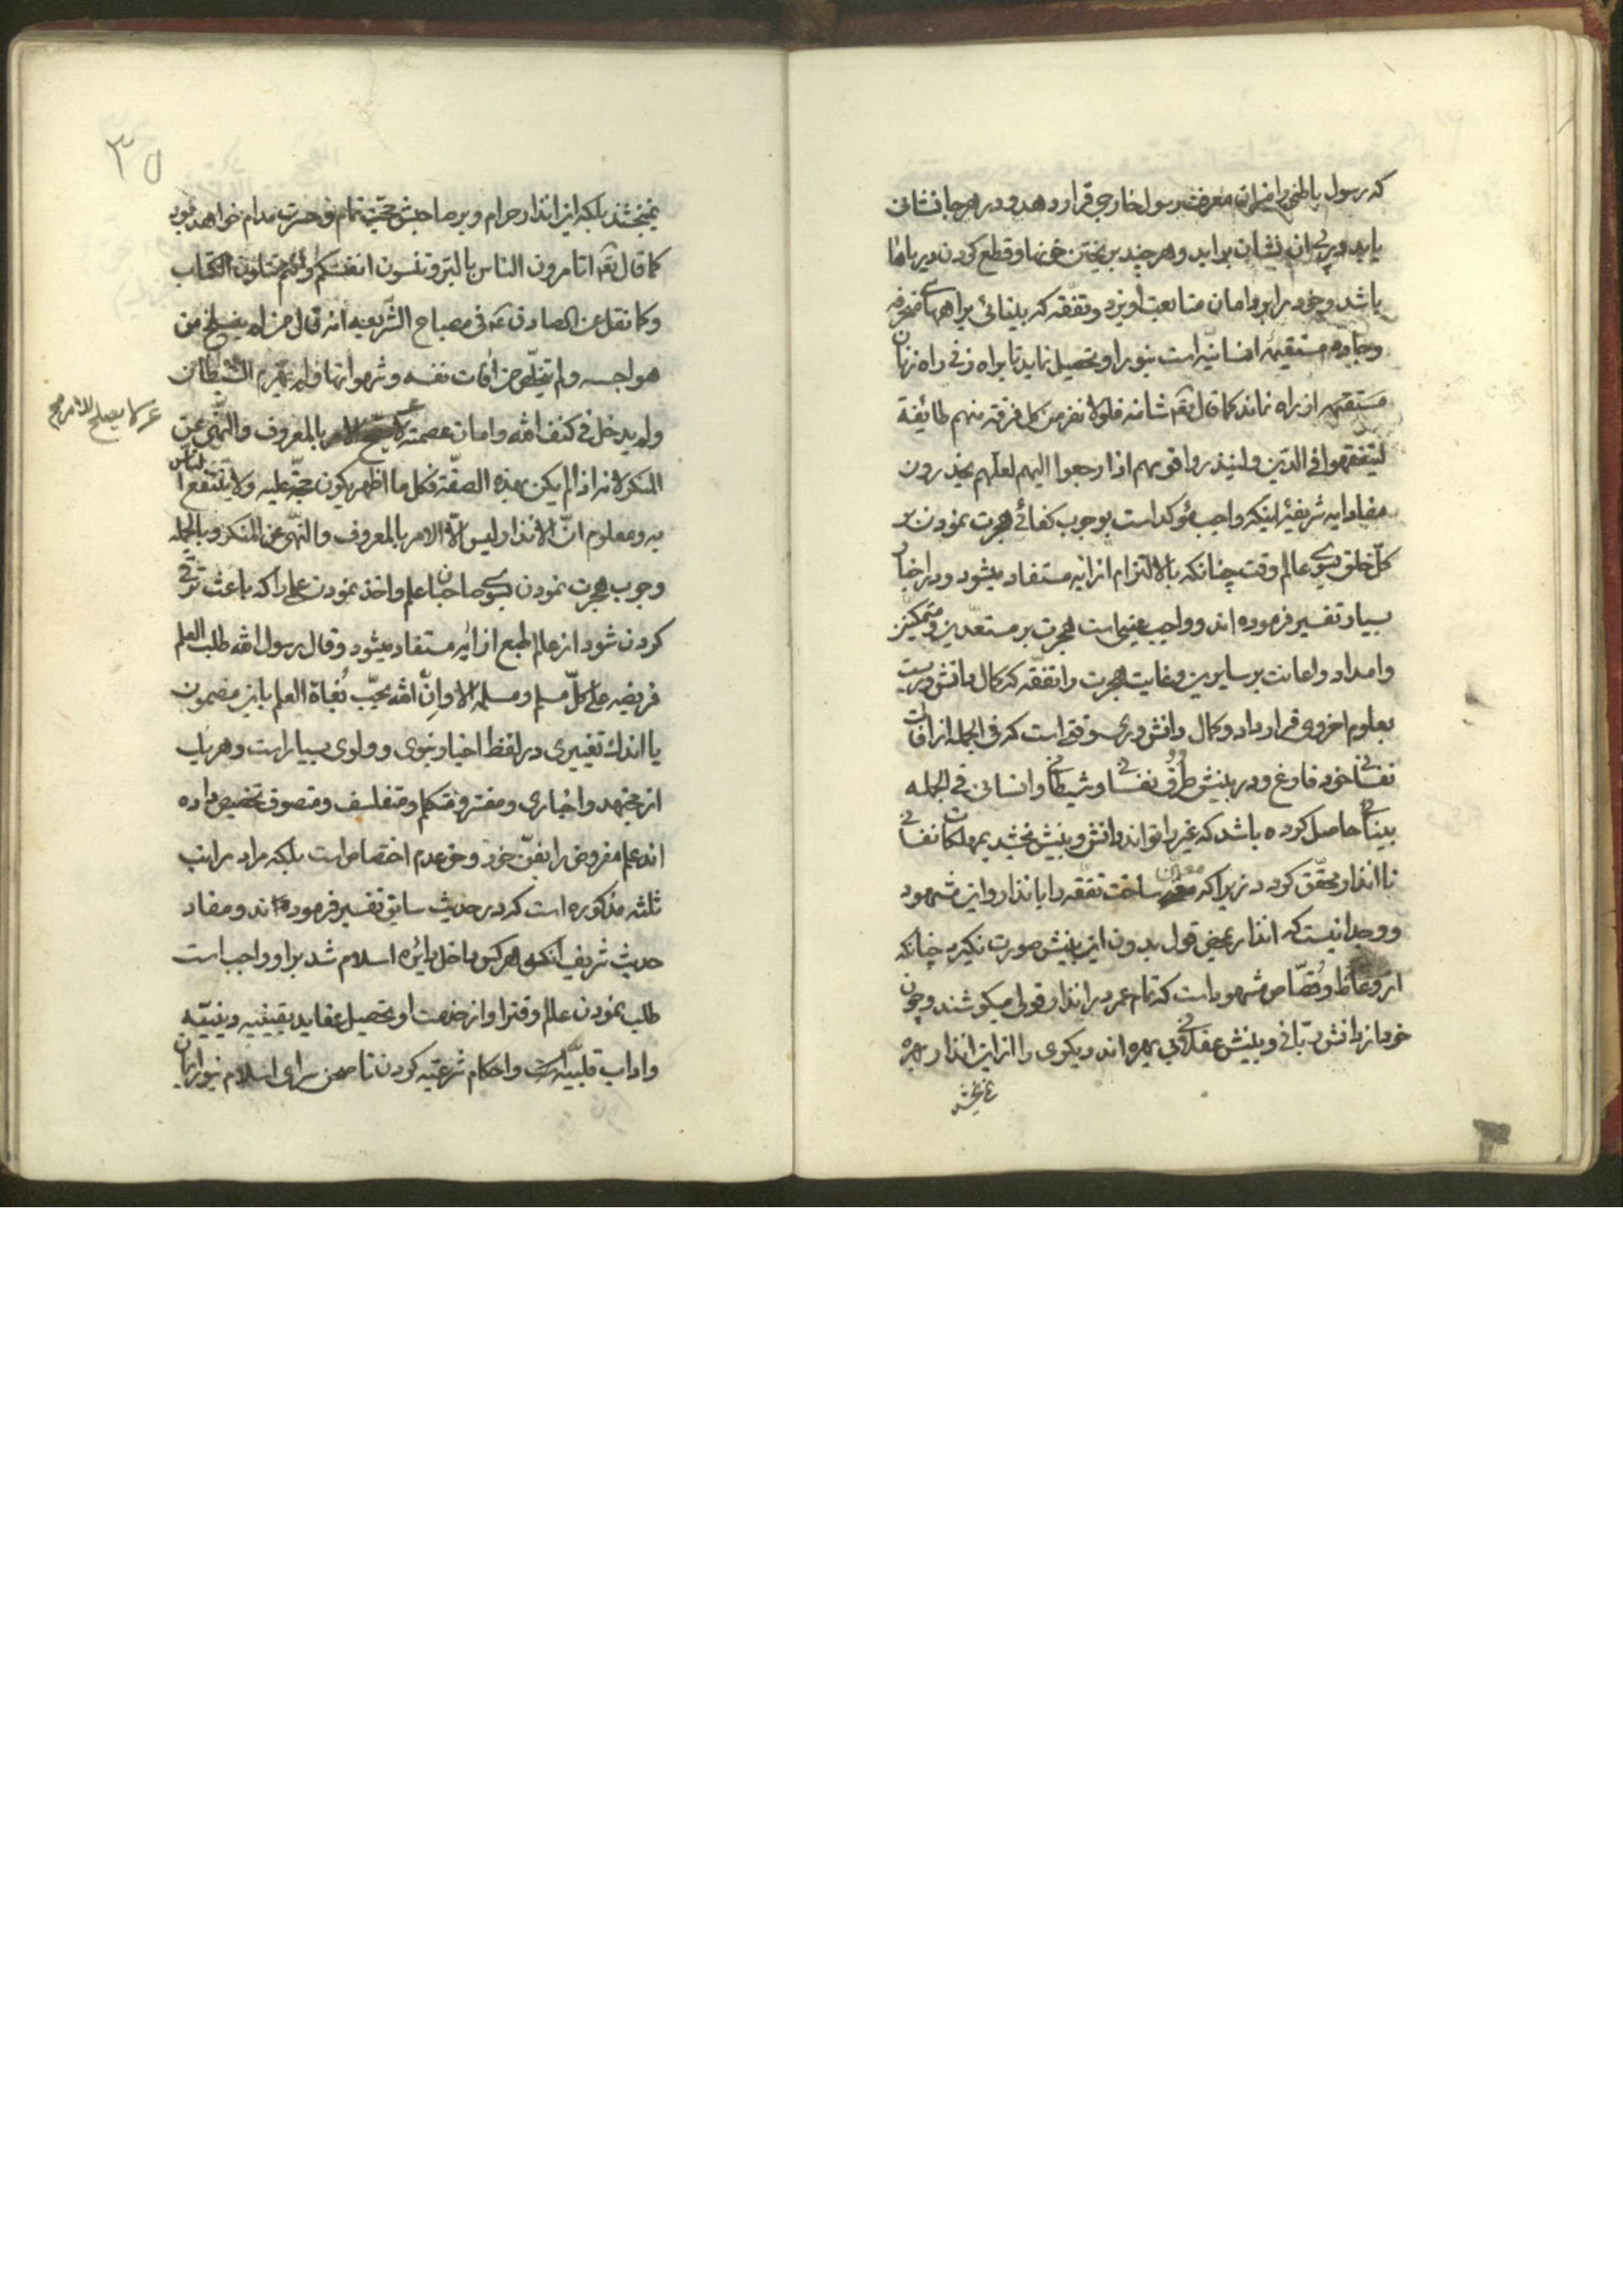 که رسول باطنی را میزان معرفت رسول خارجی قرار دهد و در هر جا نشانی
یابد در پی ان نشان براید و هر چند بریختن خونها و قطع کردن دیر باها
باشد و خود را بر دامان متابعت اویزد و تفقه که بینائی براههای منحرفه
و جاده مستقیمه انسانیه است بنور او تحصیل نماید تا براه زنی راه زنان
مستقیمه از راه نماند کما قال تعم شانه فلولا نفر من کل فرقة منهم طائفة
لیتفقهوا فی الدین ولینذروا قومهم اذا رجعوا الیهم لعلهم یحذرون
مفاد ایه شریفه اینکه واجب مؤکد است بوجوب کفائی هجرت نمودن بر
کل خلق بسوی عالم وقت چنانکه بالالتزام از ایه مستفاد میشود و در اخبار
بسیار تفسیر فرموده اند و واجب عینی است هجرت بر مستعدین و متمکنین
و امداد و اعانت بر سایرین و غایت هجرت را تفقه که کمال دانش و بینش است
بعلوم اخروی قرار داد و کمال دانش در صورتی است که فی الجمله از افات
نفسانی خود فارغ و در بینش طرق نفسانی و شیطانی و انسانی فی الجمله
بینائی حاصل کرده باشد که غیر را تواند دانش و بینش بخشد بمهلکات نفسانی
تا انذار محقق کردد زیرا که معلل ساخت تفقه را بانذار و این مشهود
و وجدانیست که انذار بمحض قول بدون این بینش صورت نکیرد چنانکه
از وعاظ و قصاص مشهود است که تمام عمر در انذار قولی میکوشند و چون
خود از دانش ربانی و بینش عقلانی بی بهره اند دیکری را از این انذار بهره
نمیبخشند
۳۵
نمیبخشند بلکه این انذار حرام و بر صاحبش حجت تمام و حسرت مدام خواهد بود
کما قال تعم اتامرون الناس بالبر وتنسون انفسکم وانتم تتلون الکتاب
و کما نقل عن الصادق ع فی مصباح الشریعه انه قال من لم ینسلخ من
هواجسه ولم یتخلص من افات نفسه وشهواتها ولم یهزم الشیطان
ولم یدخل فی کنف الله وامان عصمته لا یصلح للامر بالمعروف والنهی عن
لا یصلح للامر صح
المنکر لانه اذا لم یکن بهذه الصفة فکل ما اظهر یکون حجة علیه ولا ینتفع الناس
به و معلوم ان الانذار لیس الا الامر بالمعروف والنهی عن المنکر و بالجمله
وجوب هجرت نمودن بسوی صاحبان علم و اخذ نمودن علم را که باعث ترقی
کردن شود از عالم طبع از ایه مستفاد میشود و قال رسول الله طلب العلم
فریضه علی کل مسلم و مسلمه الا وان الله یحب بغاة العلم باین مضمون
یا اندک تغییری در لفظ اخبار نبوی و ولوی بسیار است و هر یک
از مجتهد و اخباری و مفسر و متکلم و متفلسف و متصوف تخصیص داده
اند علم مفروض را بفن خود و حق عدم اختصاص است بلکه مراد مراتب
ثلثه مذکوره است که در حدیث سابق تفسیر فرموده اند و مفاد
حدیث شریف انکه هر کس داخل دائره اسلام شد بر او واجب است
طلب نمودن عالم وقت را و از خدمت او تحصیل عقاید یقینیه دینیه
و اداب قلبیه و احکام شرعیه کردن تا صحن سرای اسلام بنور ایمان